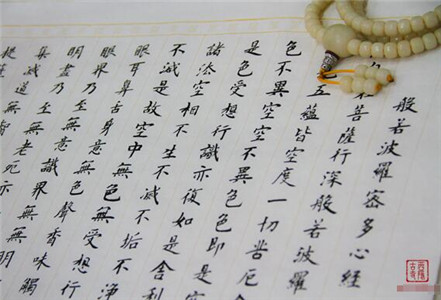 般若波羅密多心經
在菩薩行深般若波羅
五蘊皆空度一切苦厄舍
色不異空空不異色色即是空
是色受想行識亦復如是舍利
諸法空相不生不滅不垢不淨
不減是故空中無色無受想行
眼耳鼻舌身意無色聲香味觸
眼界乃至無意識界無無明
明盡乃至無老死亦
真滅道無
提